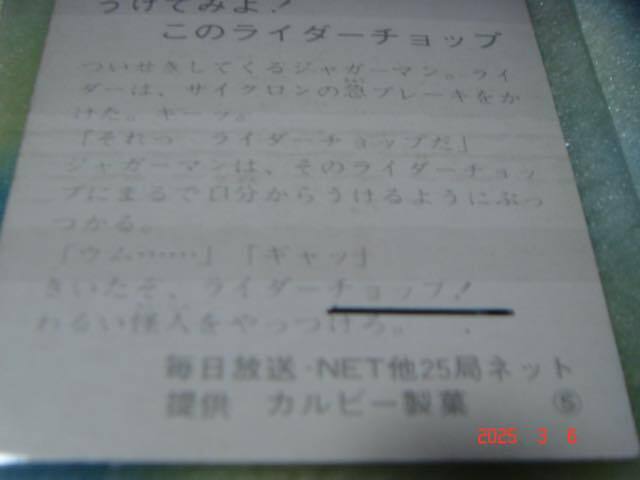 うけてみよ!
このライダーチョップ
ついせきしてくるジャガーマン。ライ
ダーは、サイクロンの急ブレーキをか
けた。キーッ。
「それっ ライダーチョップだ」
ジャガーマンは、そのライダーチョッ
プにまるで自分からうけるようにぶっ
つかる。
「ウム……」「ギャッ」
きいたぞ、ライダーチョップ!
わるい怪人をやっつけろ。
毎日放送・NET他25局ネット
提供 カルビー製菓 ⑤
2025 3 6